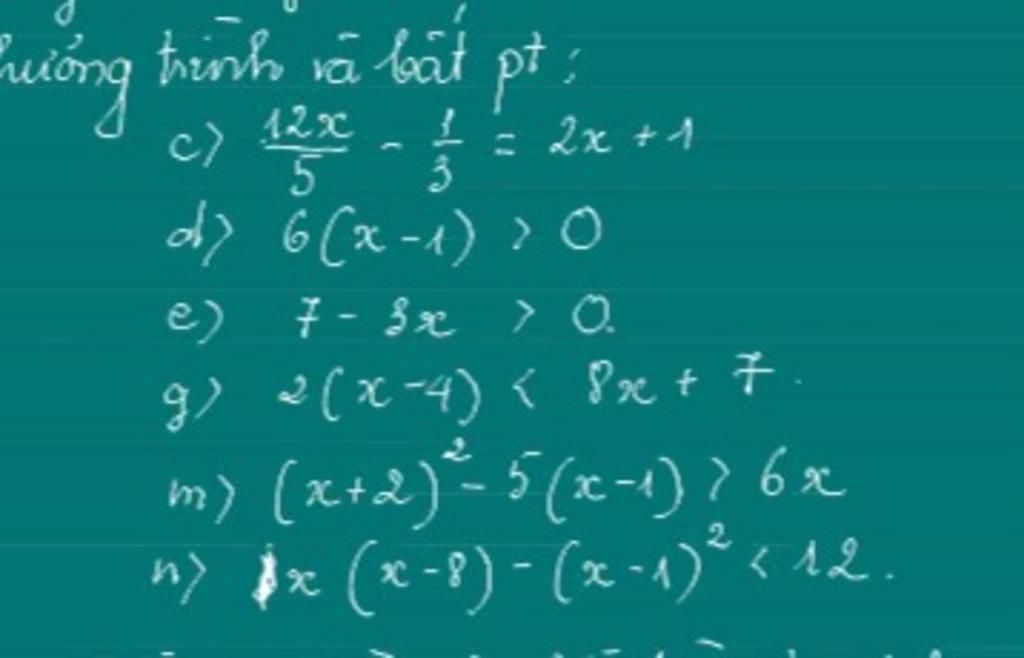 trình và bất pt :
c) 12x/5 - 1/3 = 2x + 1
d) 6(x-1) > 0
e) 7 - 3x > 0.
g) 2(x-4) < 8x + 7.
m) (x+2)² - 5(x-1) > 6x
n) x (x-8) - (x-1)² < 12.